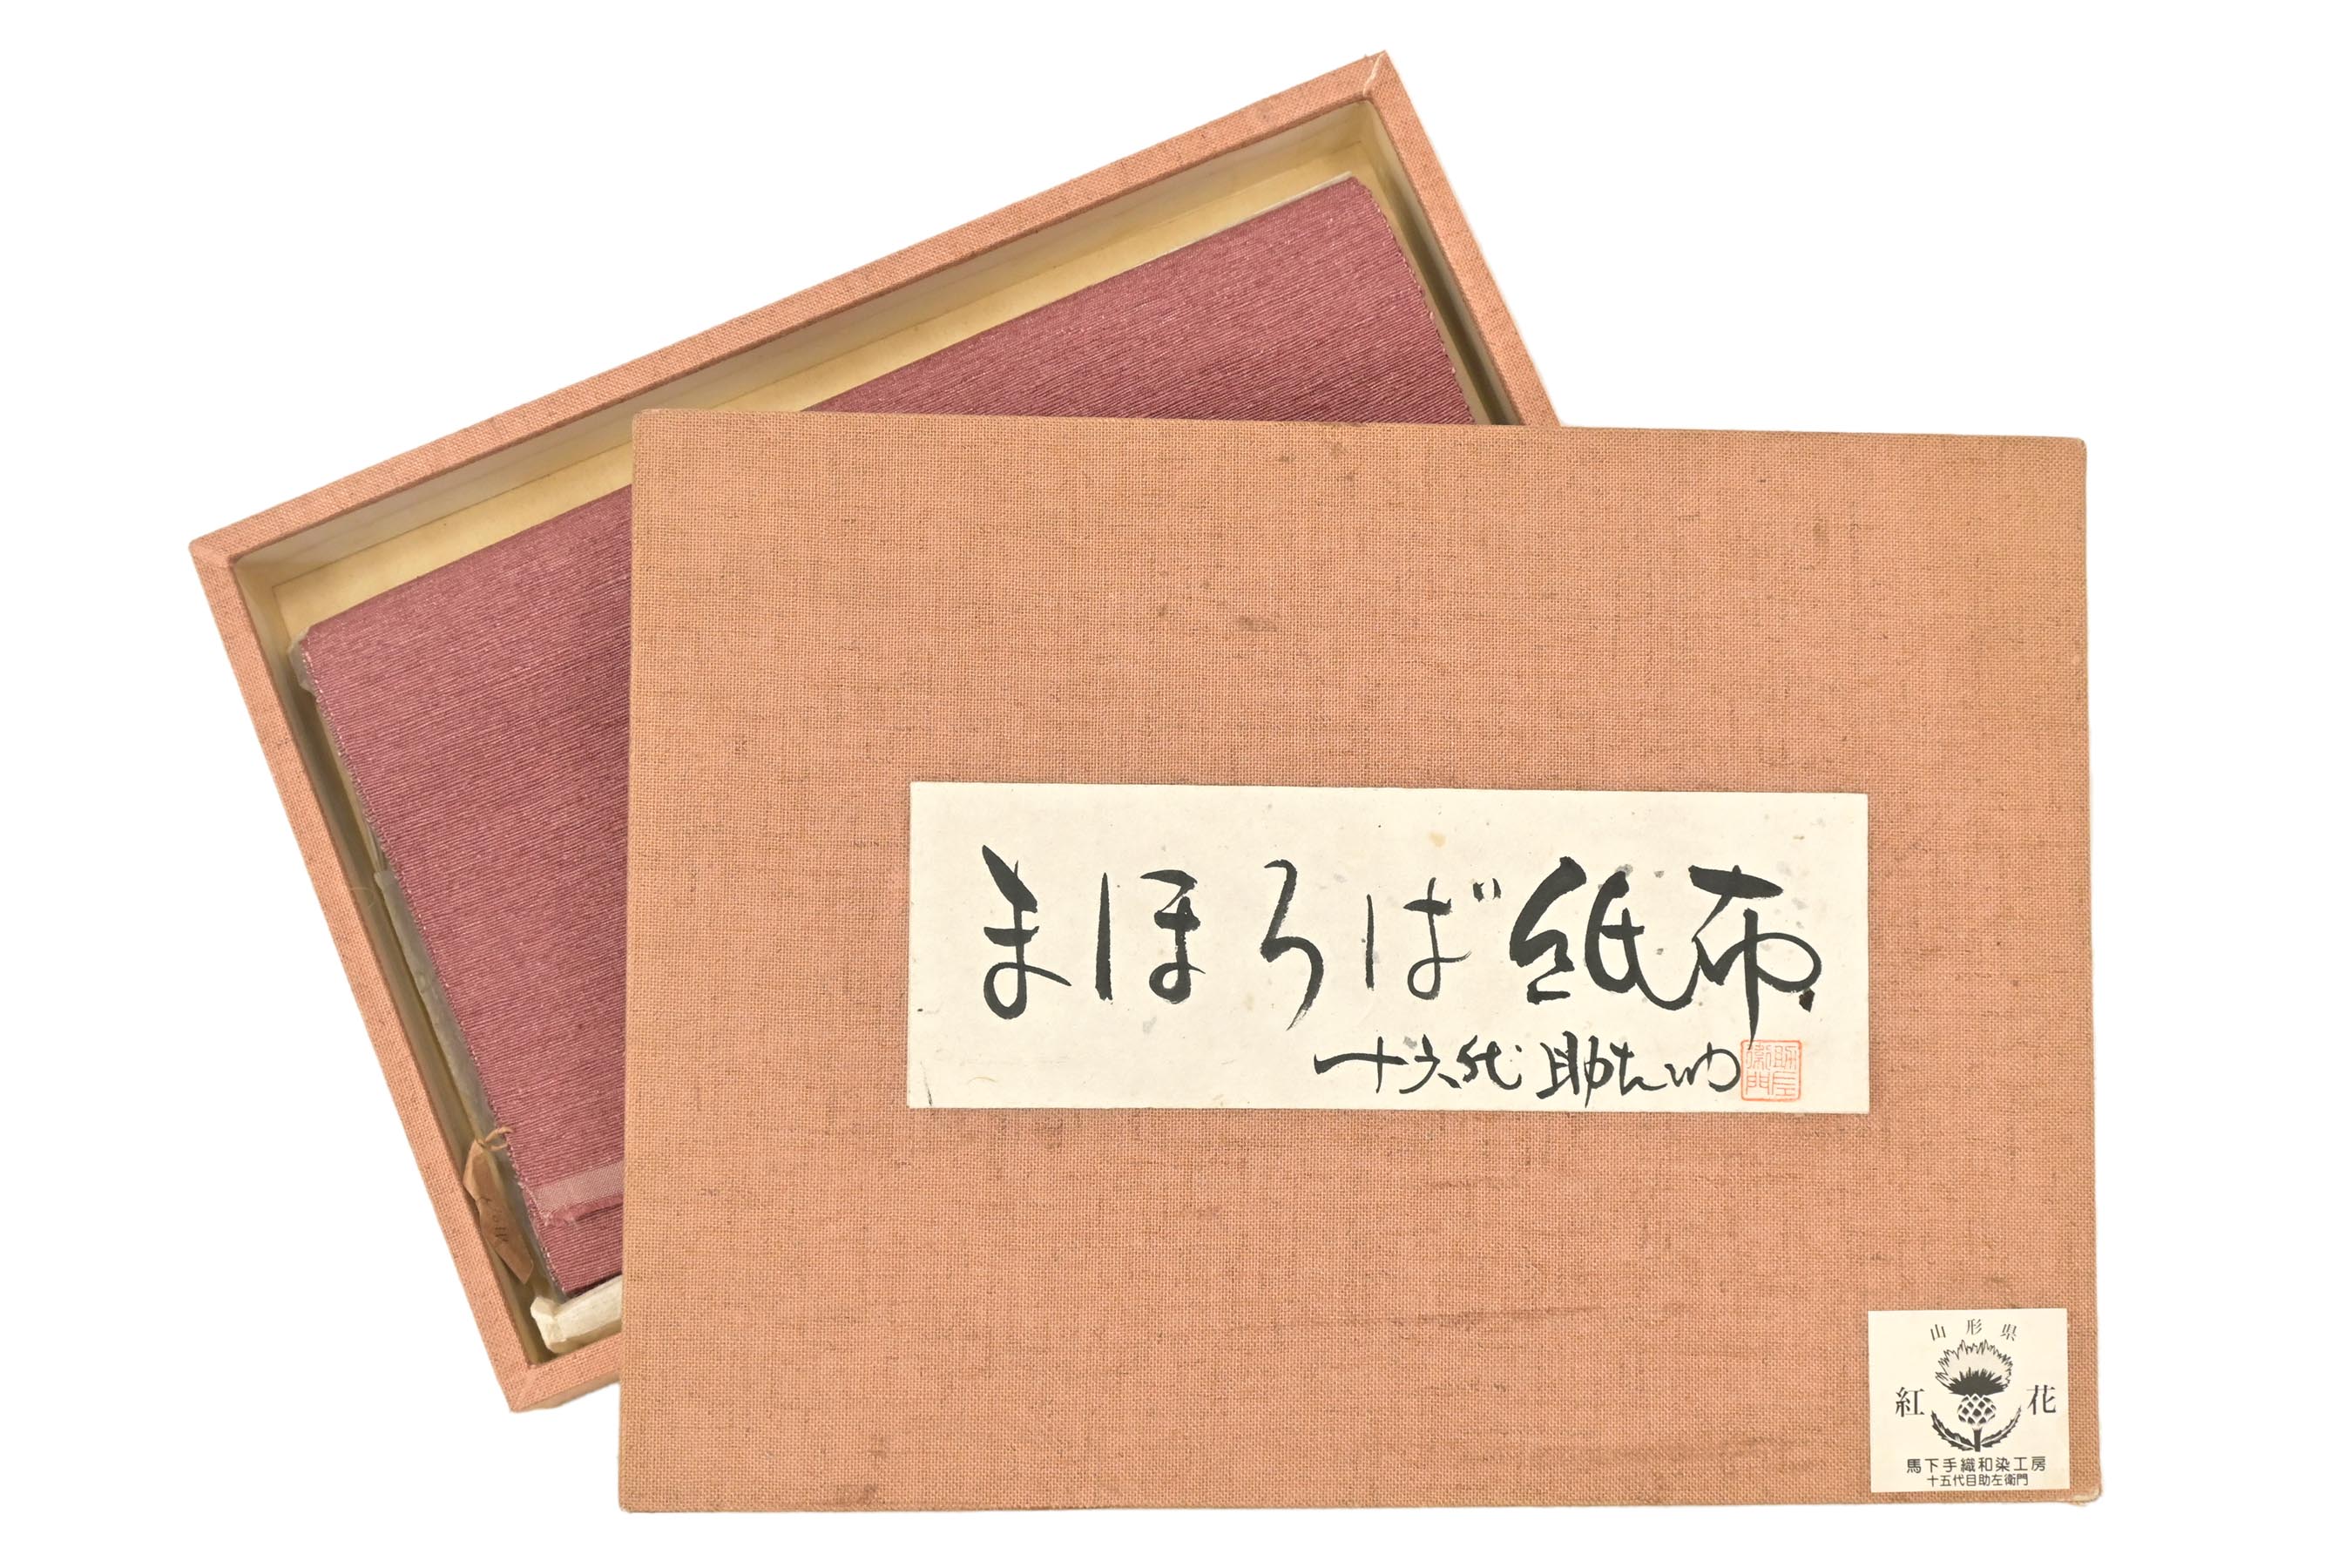 まほろば紙布
十六代 助左衛門
助左衛門
山形県
紅花
馬下手織和染工房
十五代目助左衛門